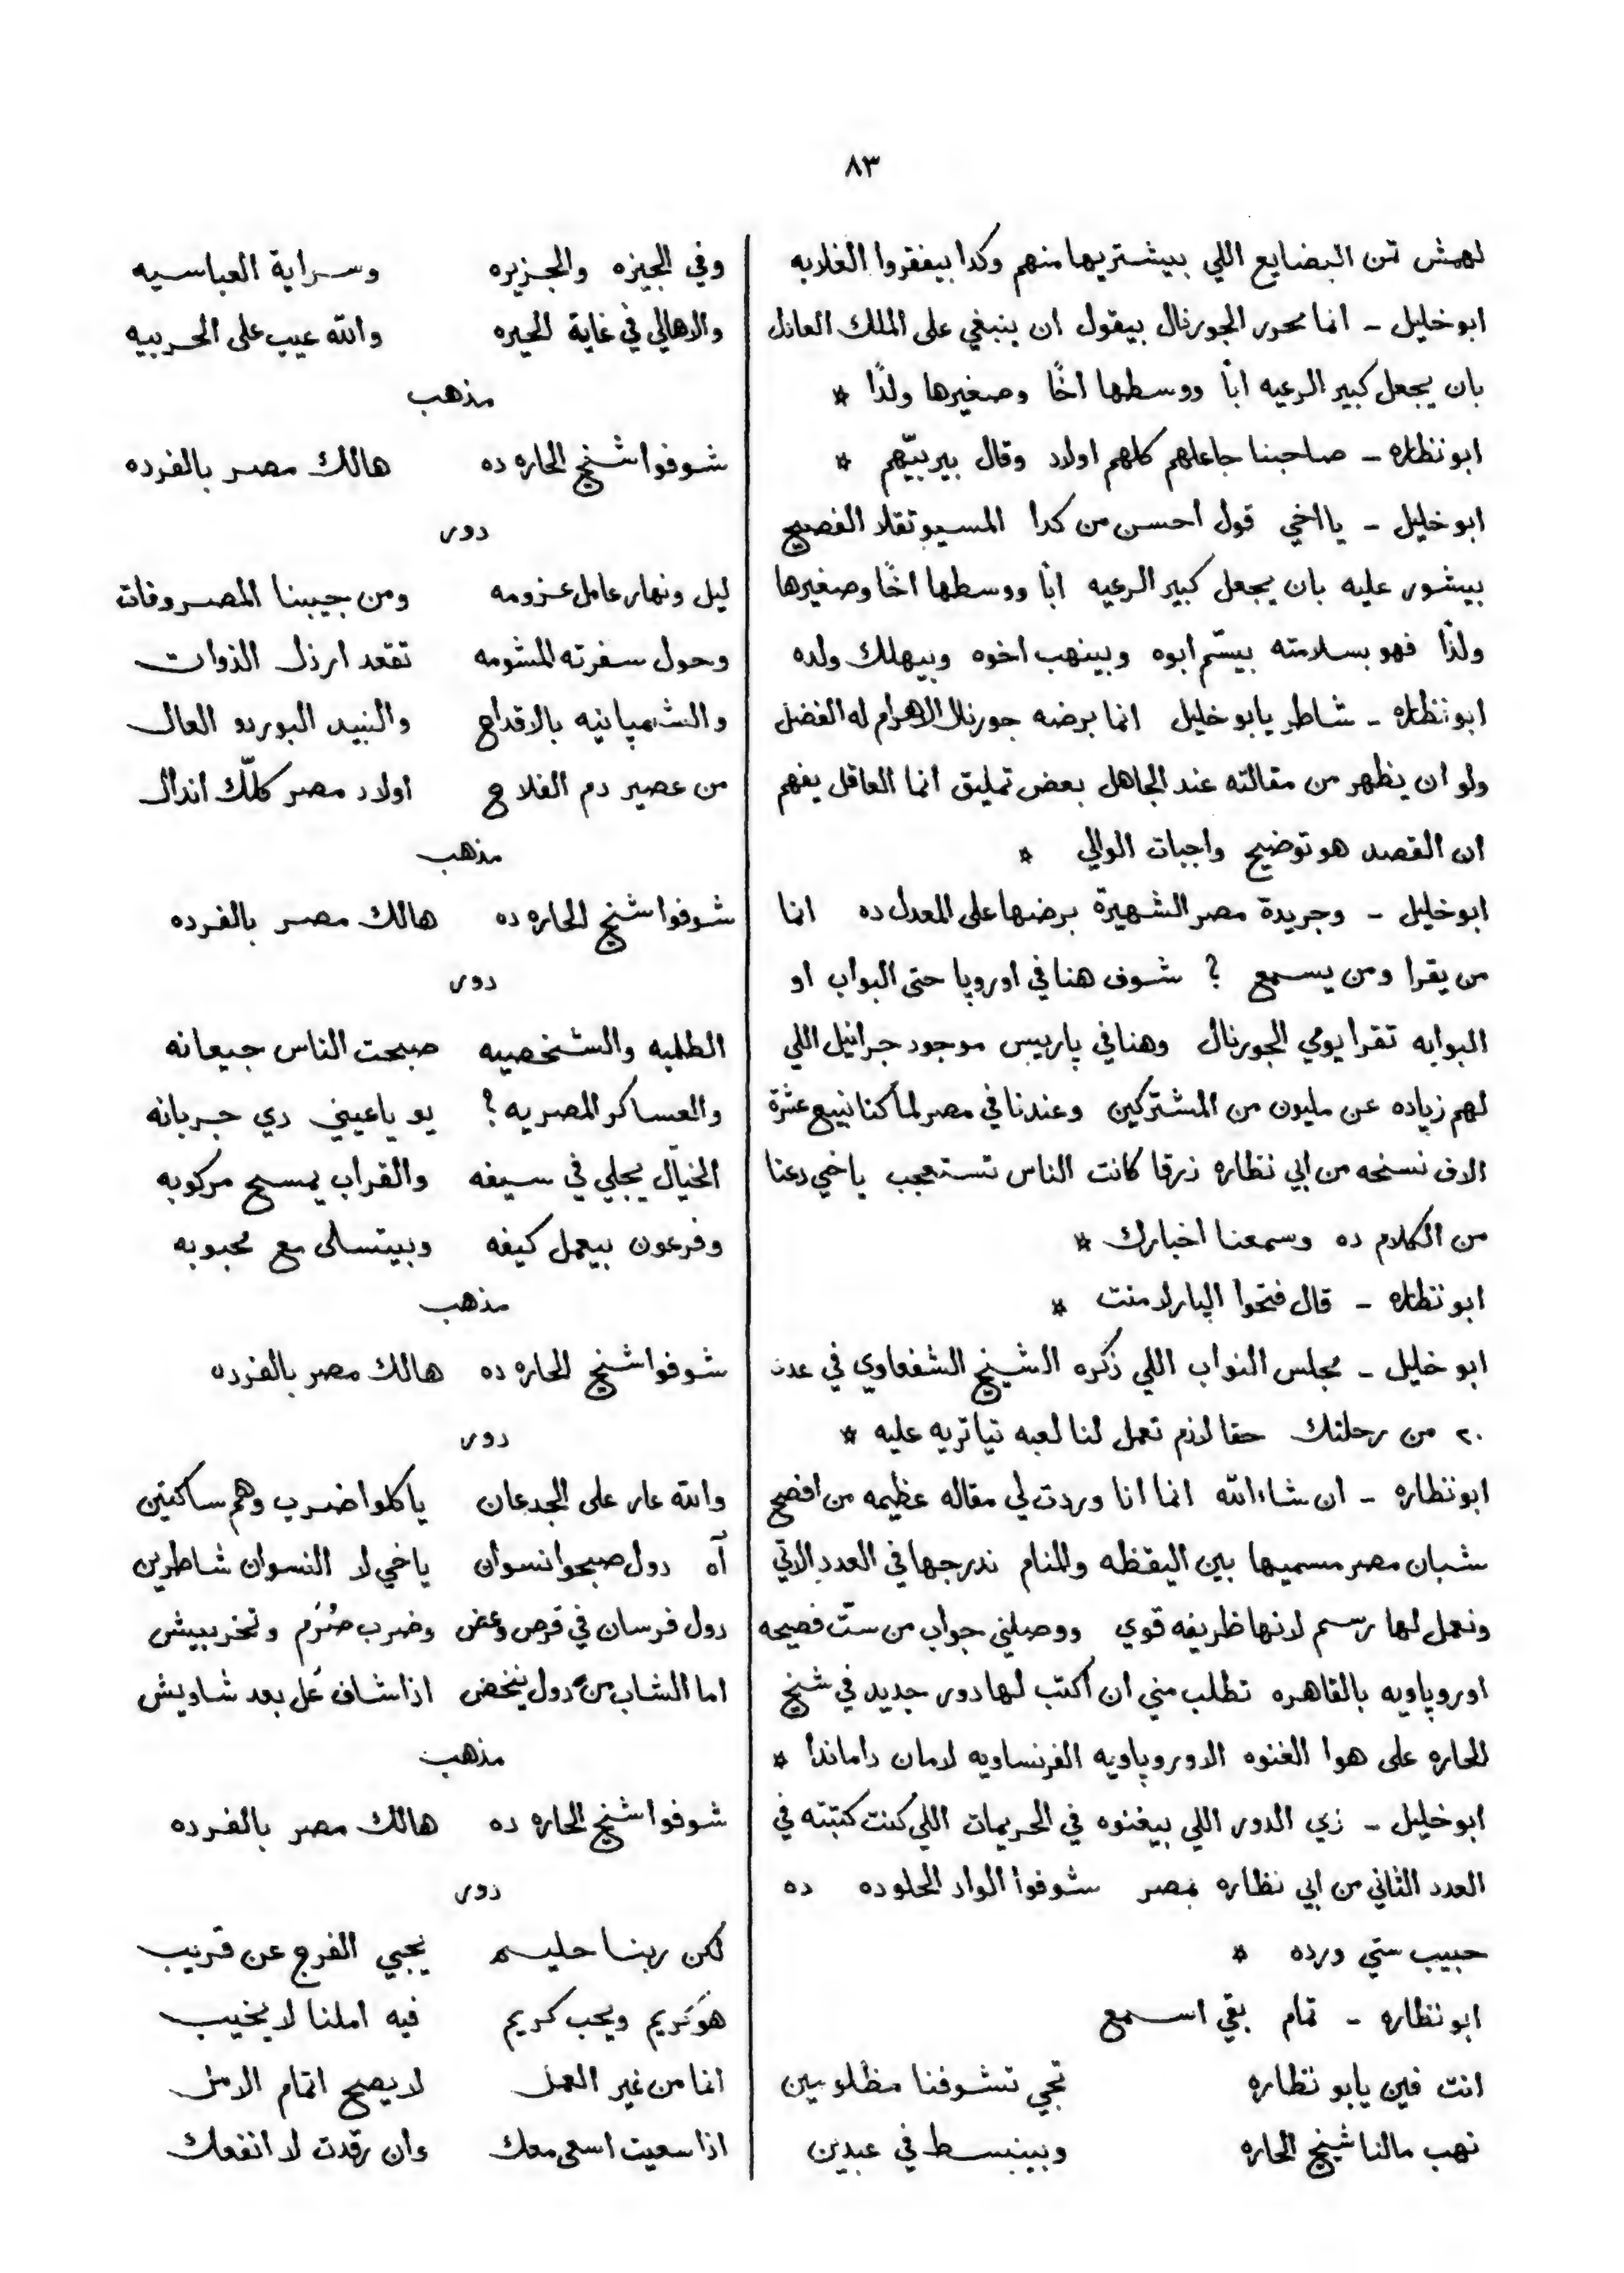 ٨٣
لهمش تمن البضايع اللي بيشتريها منهم وكدا بيفقروا الغلابه
ابو خليل ـ انما محرر الجورنال بيقول ان ينبغي على الملك العادل
بان يجعل كبير الرعيه ابًا ووسطها اخًا وصغيرها ولدًا *
ابو نظاره ـ صاحبنا جاعلهم كلهم اولاد وقال بيربيّهم *
ابو خليل ـ يا اخي قول احسن من كدا المسيو تقلا الفصيح
بيشور عليه بان يجعل كبير الرعيه ابًا ووسطها اخًا وصغيرها
ولدًا فهو بسلامته بيسّم ابوه وبينهب اخوه وبيهلك ولده
ابو نظاره ـ شاطر يابو خليل انما برضه جورنال الاهرام له الفضل
ولو ان يظهر من مقالته عند الجاهل بعض تمليق انما العاقل يفهم
ان القصد هو توضيح واجبات الوالي *
ابو خليل ـ وجريدة مصر الشهيرة برضها على المعدل ده انما
من يقرا ومن يسمع ? شوف هنا في اوروپا حتى البواب او
البوابه تقرا يومي الجورنال وهنا في پاريس موجود جرانيل اللي
لهم زياده عن مليون من المشتركين وعندنا في مصر لما كنا نبيع عشرة
الاف نسخه من ابي نظاره زرقا كانت الناس تستعجب ياخي دعنا
من الكلام ده وسمعنا اخبارك *
ابو نظاره ـ قال فتحوا الپارلامنت *
ابو خليل ـ مجلس النواب اللي ذكره الشيخ الشفعاوي في عدد
٢٠ من رحلتك حقا لازم تعمل لنا لعبه تياتريه عليه *
ابو نظاره ـ ان شاء الله انما انا وردت لي مقاله عظيمه من افصح
شبان مصر مسميها بين اليقظه والمنام ندرجها في العدد الاتي
ونعمل لها رسم لانها ظريفه قوي ووصلني جواب من ستّ فصيحه
اوروپاويه بالقاهره تطلب مني ان اكتب لها دور جديد في شيخ
الحاره على هوا الغنوه الاوروپاويه الفرنساويه لامان داماندا *
ابو خليل ـ زي الدور اللي بيغنوه في الحريمات اللي كنت كتبته في
العدد الثاني من ابي نظاره بمصر شوفوا الواد الحلو ده ده
حبيب ستي ورده *
ابو نظاره ـ تمام بقي اسمع
انت فين يابو نظاره تجي تشوفنا مظلومين
نهب مالنا شيخ الحاره وبينبسط في عبدين
وفي الجيزه والجزيره وسراية العباسيه
والاهالي في غاية الحيره والله عيب على الحربيه
مذهب
شوفوا شيخ الحاره ده هالك مصر بالفرده
دور
ليل ونهار عامل عزومه ومن جيبنا المصروفات
وحول سفرته المشومه تقعد ارذل الذوات
والشمپانيه بالاقداح والنبيد البوردو العال
من عصير دم الفلاح اولاد مصر كلّك اندال
مذهب
شوفوا شيخ الحاره ده هالك مصر بالفرده
دور
الطلبه والشخصيه صبحت الناس جيعانه
والعساكر المصريه ? يو ياعيني دي جربانه
الخيّال يجلي في سيفه والقراب يمسح مركوبه
وفرعون بيعمل كيفه وبيتسلى مع محبوبه
مذهب
شوفوا شيخ الحاره ده هالك مصر بالفرده
دور
والله عار على الجدعان ياكلوا ضرب وهم ساكتين
آه دول صبحوا نسوان ياخي لا النسوان شاطرين
دول فرسان في قرص وعض وضرب صُرَم وتخربيش
اما الشاب من دول ينخض اذا شاف عن بعد شاويش
مذهب
شوفوا شيخ الحاره ده هالك مصر بالفرده
دور
لكن ربنا حليم يجيي الفرج عن قريب
هو كريم ويحب كريم فيه املنا لا يخيب
انما من غير العمل لا يصح اتمام الامل
اذا سعيت اسعى معك وان رقدت لا انفعك